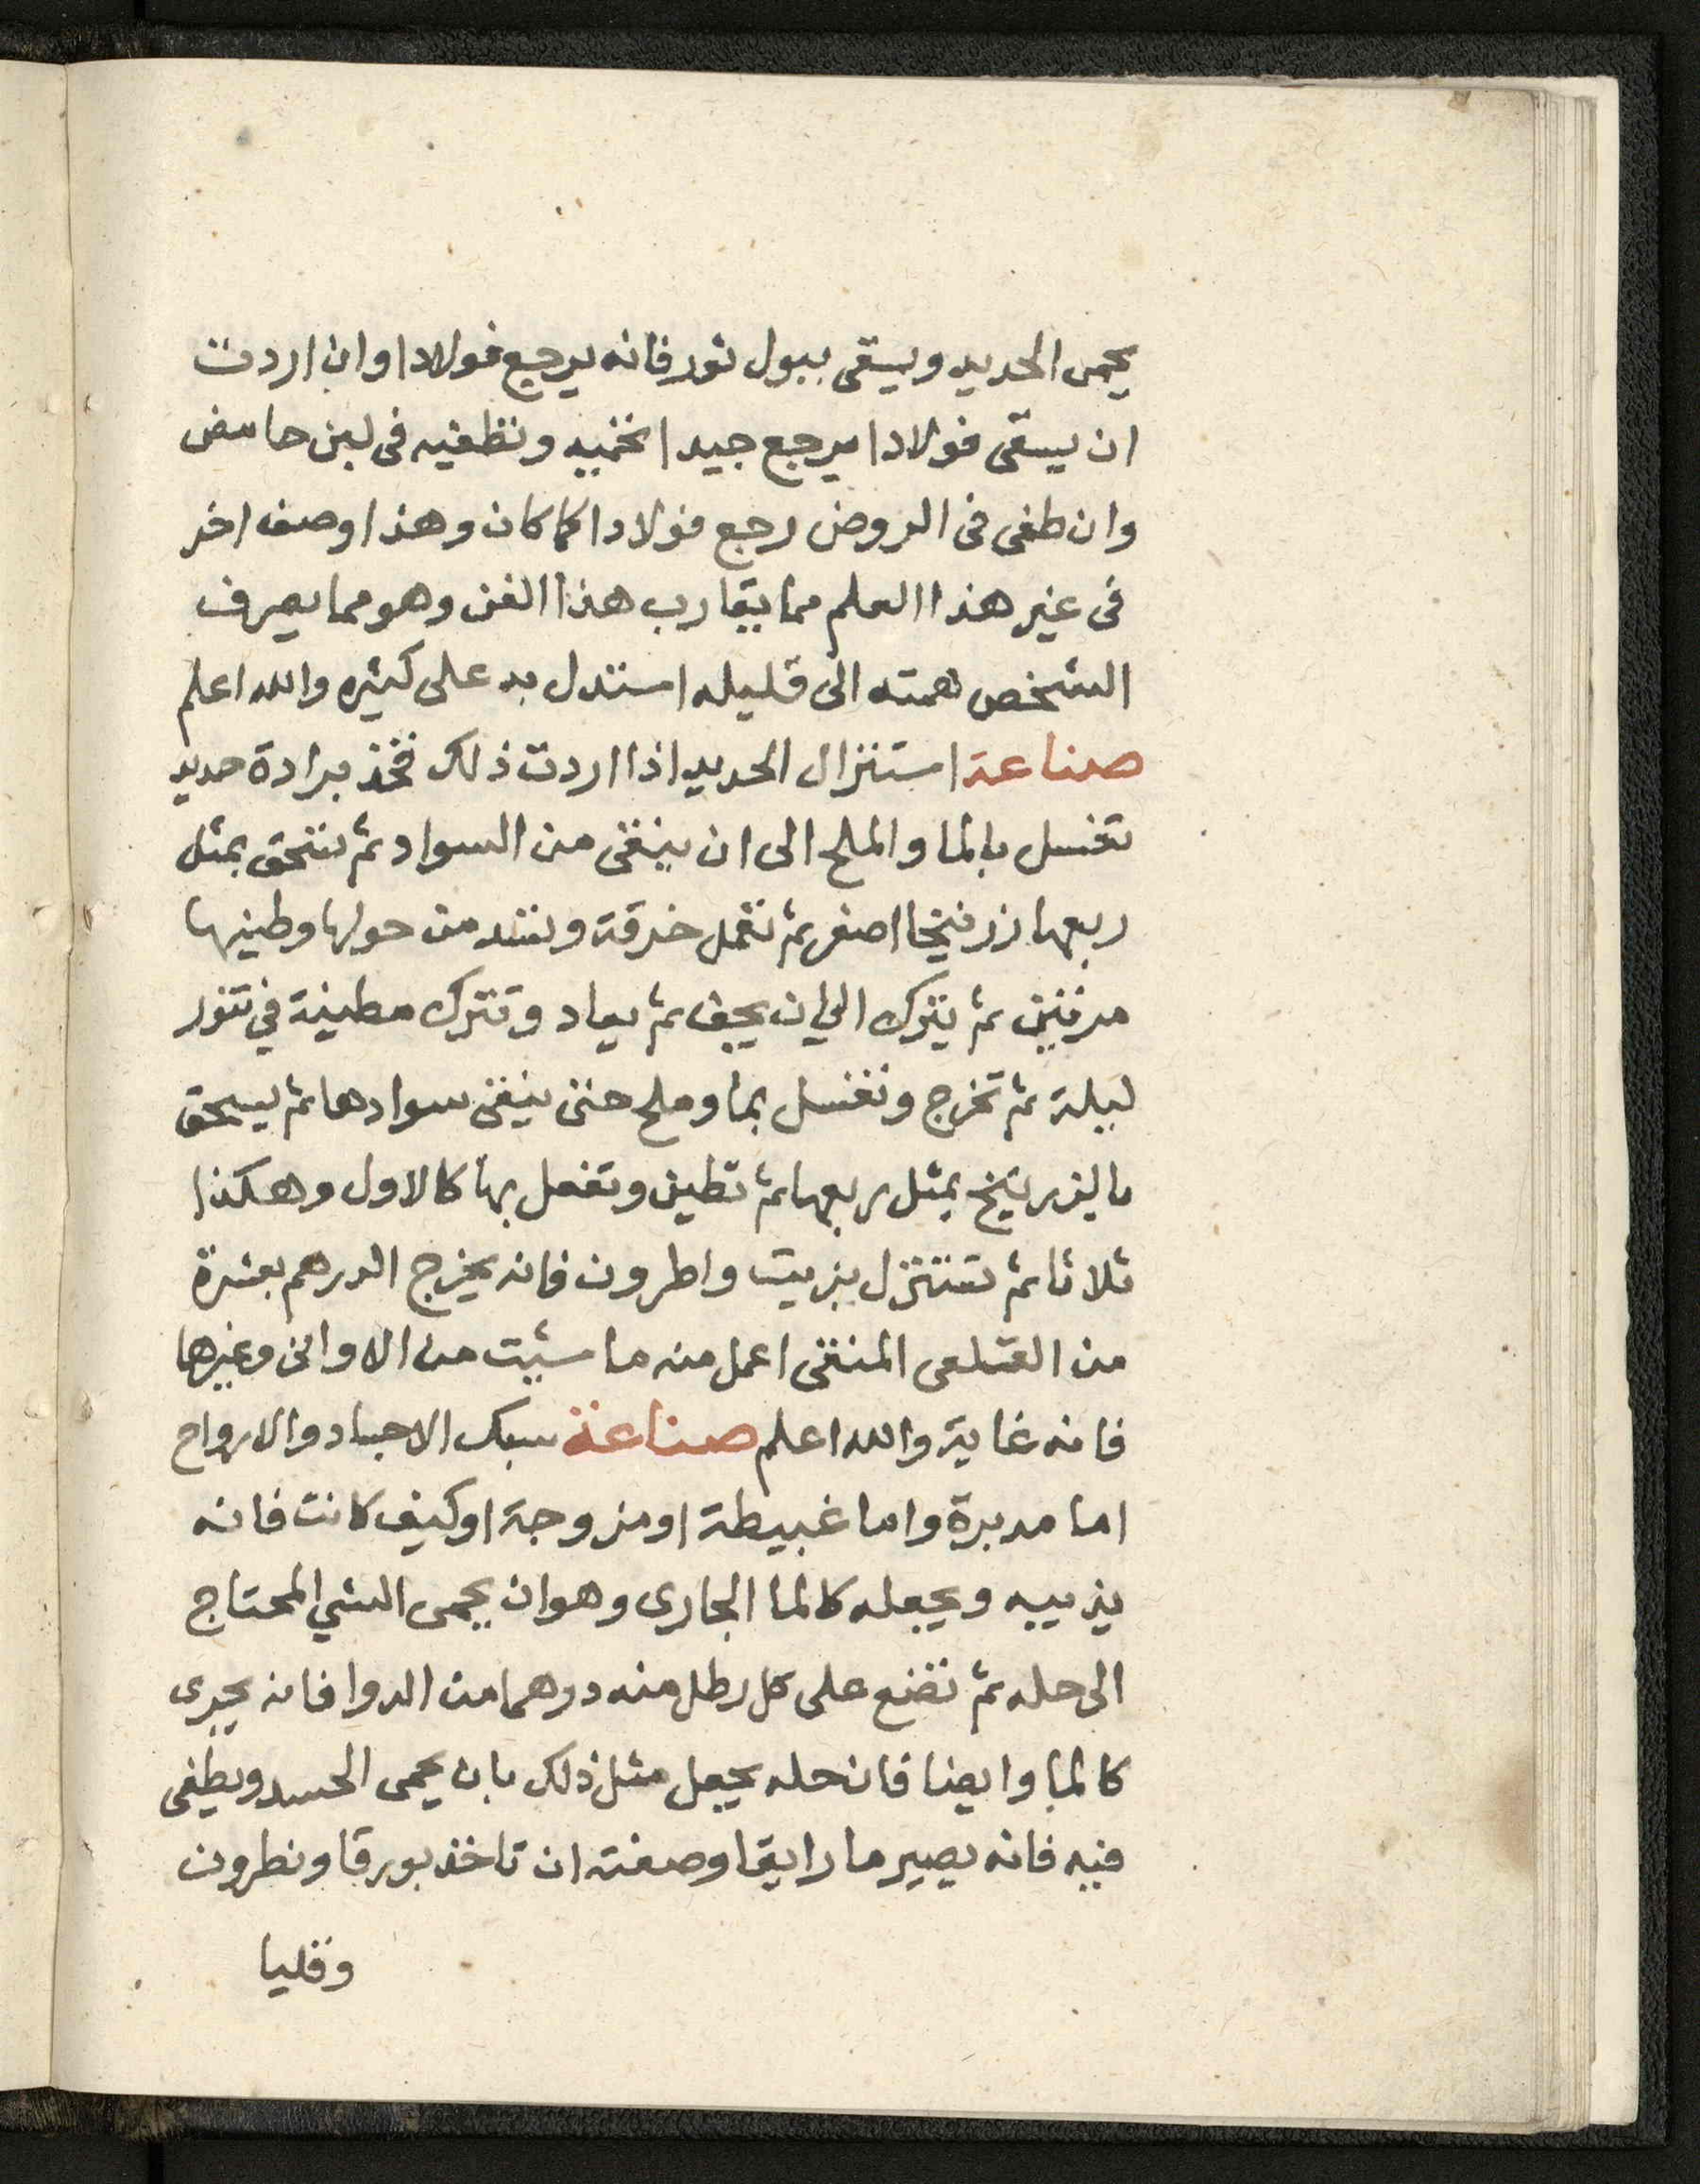 يحمى الحديد ويسقى ببول ثور فانه يرجع فولادا وان اردت
ان يسقى فولادا يرجع جيدا تحميه وتطفيه فى لبن حامض
وان طفى فى الروض رجع فولادا كما كان وهذا وصف اخر
فى غير هذا العلم مما يقارب هذا الفن وهو مما يصرف
الشخص همته الى قليله استدل به على كثيره والله اعلم
صناعة استنزال الحديد اذا اردت ذلك فخذ برادة حديد
تغسل بالما والملح الى ان ينقى من السواد ثم تسحق بمثل
ربعها زرنيخا اصفر ثم تعمل خرقة وتشد من حولها وطينها
مرتين ثم يترك الى ان يجف ثم يعاد وتترك مطينة في تنور
ليلة ثم تخرج وتغسل بما وملح حتى ينقى سوادها ثم يسحق
بالزرنيخ بمثل ربعها ثم تطين وتفعل بها كالاول وهكذا
ثلاثا ثم تستنزل بزيت واطرون فانه يخرج الدرهم بعشرة
من القلعى المنقى اعمل منه ما شيت من الاوانى وغيرها
فانه غاية والله اعلم صناعة سبك الاجساد والارواح
اما مدبرة واما غبيطة او مزوجة او كيف كانت فانه
يذيبه ويجعله كالما الجارى وهو ان يحمى الشي المحتاج
الى حله ثم تضع على كل رطل منه درهما من الدوا فانه يجرى
كالما وايضا فان حله يجعل مثل ذلك بان يحمى الجسد ويطفى
فيه فانه يصير ما رايقا وصفته ان تاخذ بورقا ونطرون
وقليا